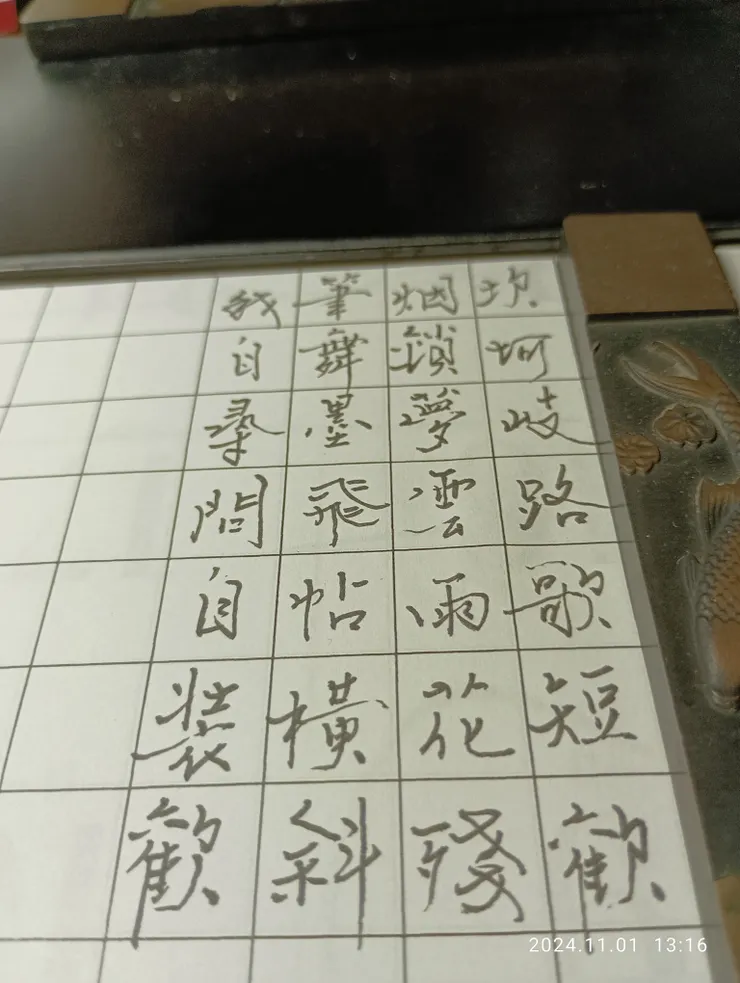 坎坷歧路歌短歡
烟鎖夢雲雨花殘
筆舞墨飛帖橫斜
我自問自裝歡
2024.11.01 13:16